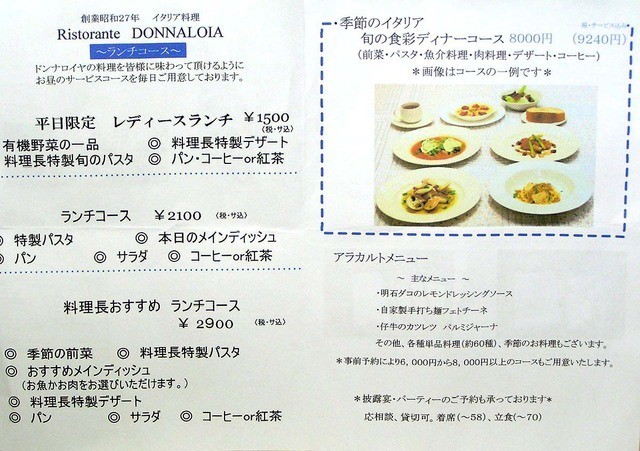 創業昭和27年　イタリア料理
Ristorante　DONNALOIA
～ランチコース～
ドンナロイヤの料理を皆様に味わって頂けるように
お昼のサービスコースを毎日ご用意しております。
平日限定　レディースランチ　￥1500
(税・サ込)
有機野菜の一品　◎　料理長特製デザート
料理長特製旬のパスタ　◎　パン・コーヒーor紅茶
ランチコース　￥2100　(税・サ込)
◎　特製パスタ　◎　本日のメインディッシュ
◎　パン　◎　サラダ　◎　コーヒーor紅茶
料理長おすすめ　ランチコース
￥ 2900　(税・サ込)
◎　季節の前菜　◎　料理長特製パスタ
◎　おすすめメインディッシュ
（お魚かお肉をお選びいただけます。）
◎　料理長特製デザート
◎　パン　◎　サラダ　◎　コーヒーor紅茶
・季節のイタリア
税・サービス込み
旬の食彩ディナーコース　8000円　（9240円）
（前菜・パスタ・魚介料理・肉料理・デザート・コーヒー）
＊画像はコースの一例です＊
アラカルトメニュー
～　主なメニュー　～
・明石ダコのレモンドレッシングソース
・自家製手打ち麺フェトチーネ
・仔牛のカツレツ　パルミジャーナ
その他、各種単品料理（約60種）、季節のお料理もございます。
＊事前予約により6，000円から8，000円以上のコースもご用意いたします。
＊披露宴・パーティーのご予約も承っております＊
応相談、貸切可。着席（～58）、立食（～70）